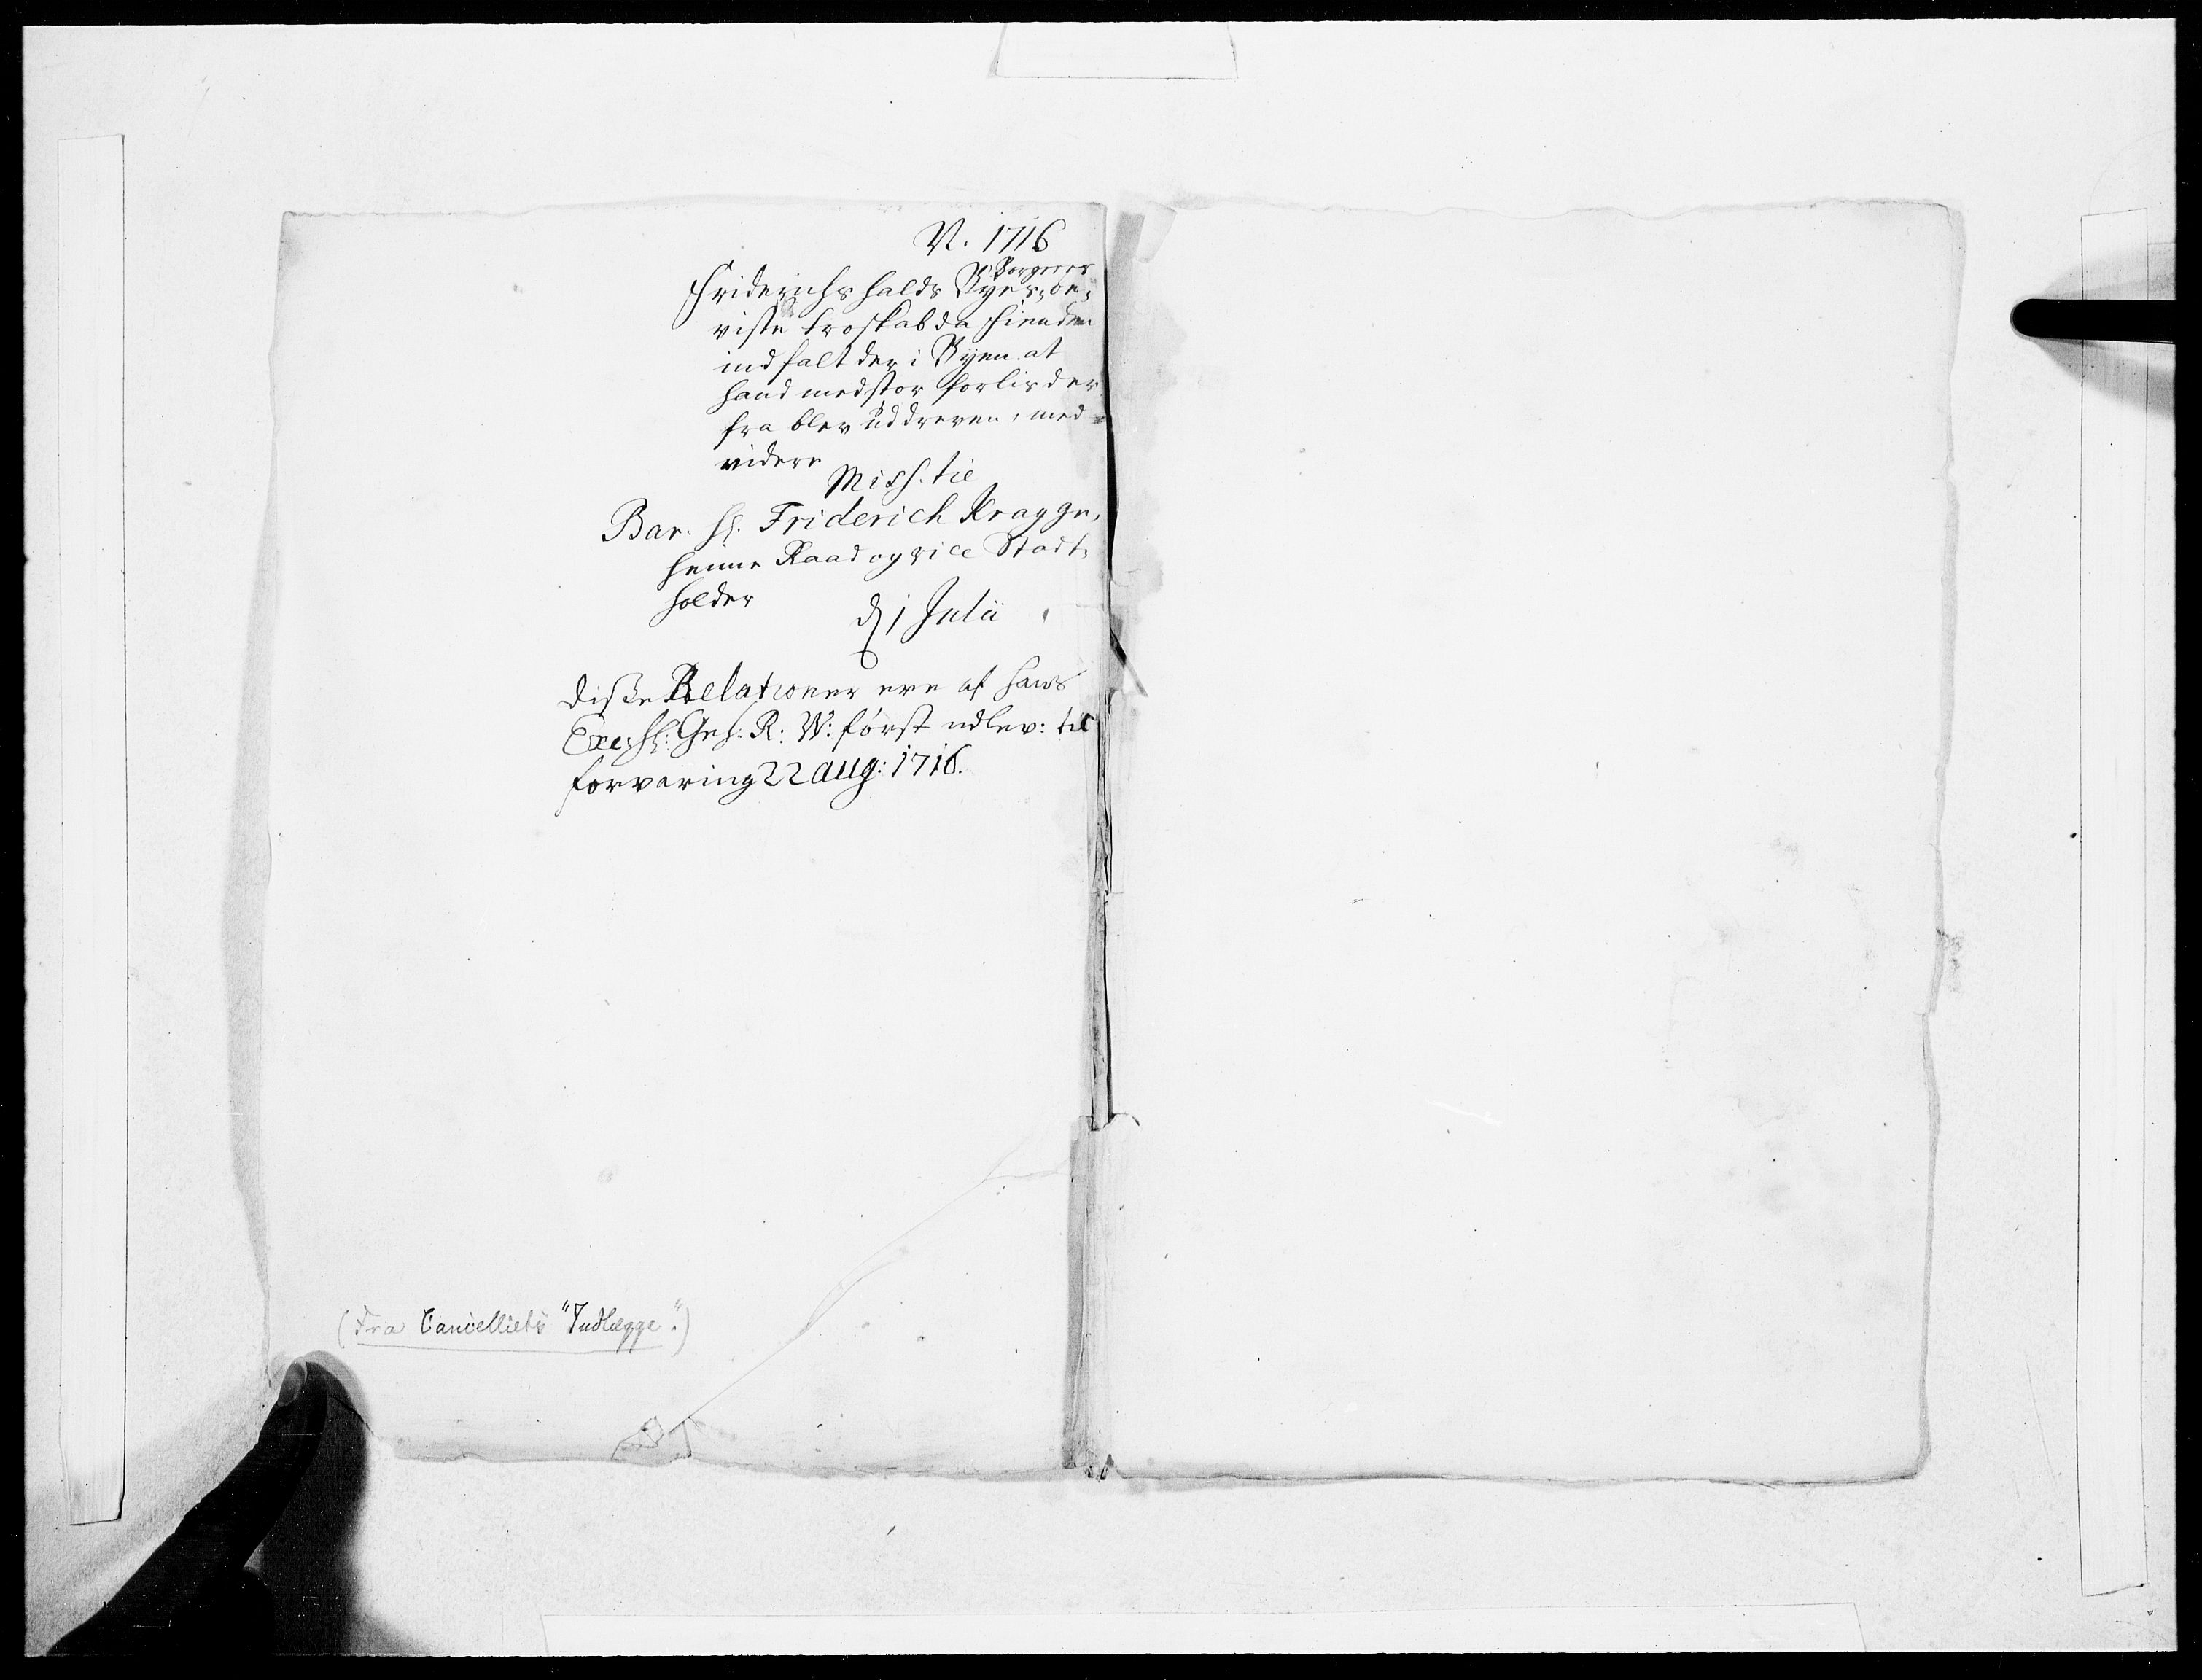 N. 1716
Borgeres
Friderichshalds Byes be,
viste troskab da Fienden
indfalt der i Byen at
hand med stor forlis der
fra blev uddreven, med
videre
Miss. til
Bar. H. Friderich Krag ge,
heime Raad og vice Stadt,
holder
d 1 Julii
Disse Relationer ere af hans
Exc. H: Geh. R: W: først udlev: til
forvaring 22 aug: 1716.
(Fra Cancelliets "Indlægge".)